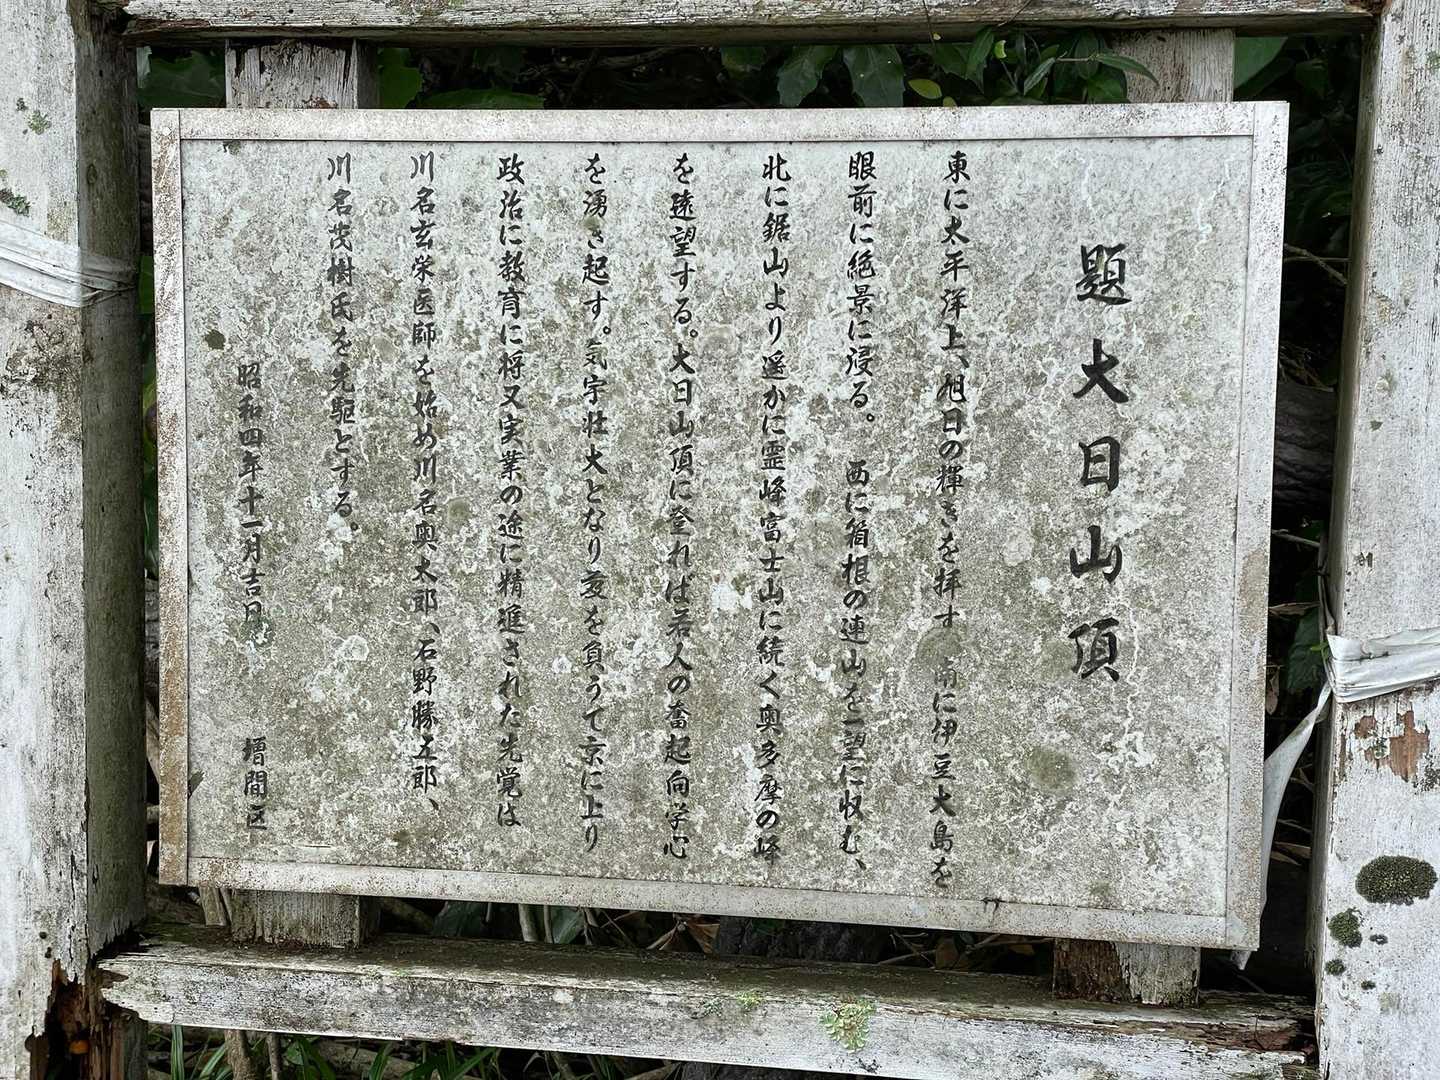 題大日山頂
東に太平洋上、旭日の輝きを拝す 南に伊豆大島を
眼前に絶景に浸る。 西に箱根の連山を一望に収む、
北に鋸山より遥かに霊峰富士山に続く奥多摩の峰
を遠望する。大日山頂に登れば若人の奮起向学心
を湧き起す。気宇壮大となり笈を負うて京に上り
政治に教育に将又実業の途に精進された先覚は
川名玄栄医師を始め川名奥太郎、石野勝五郎、
川名茂樹氏を先駆とする。
昭和四年十一月吉日 増間区